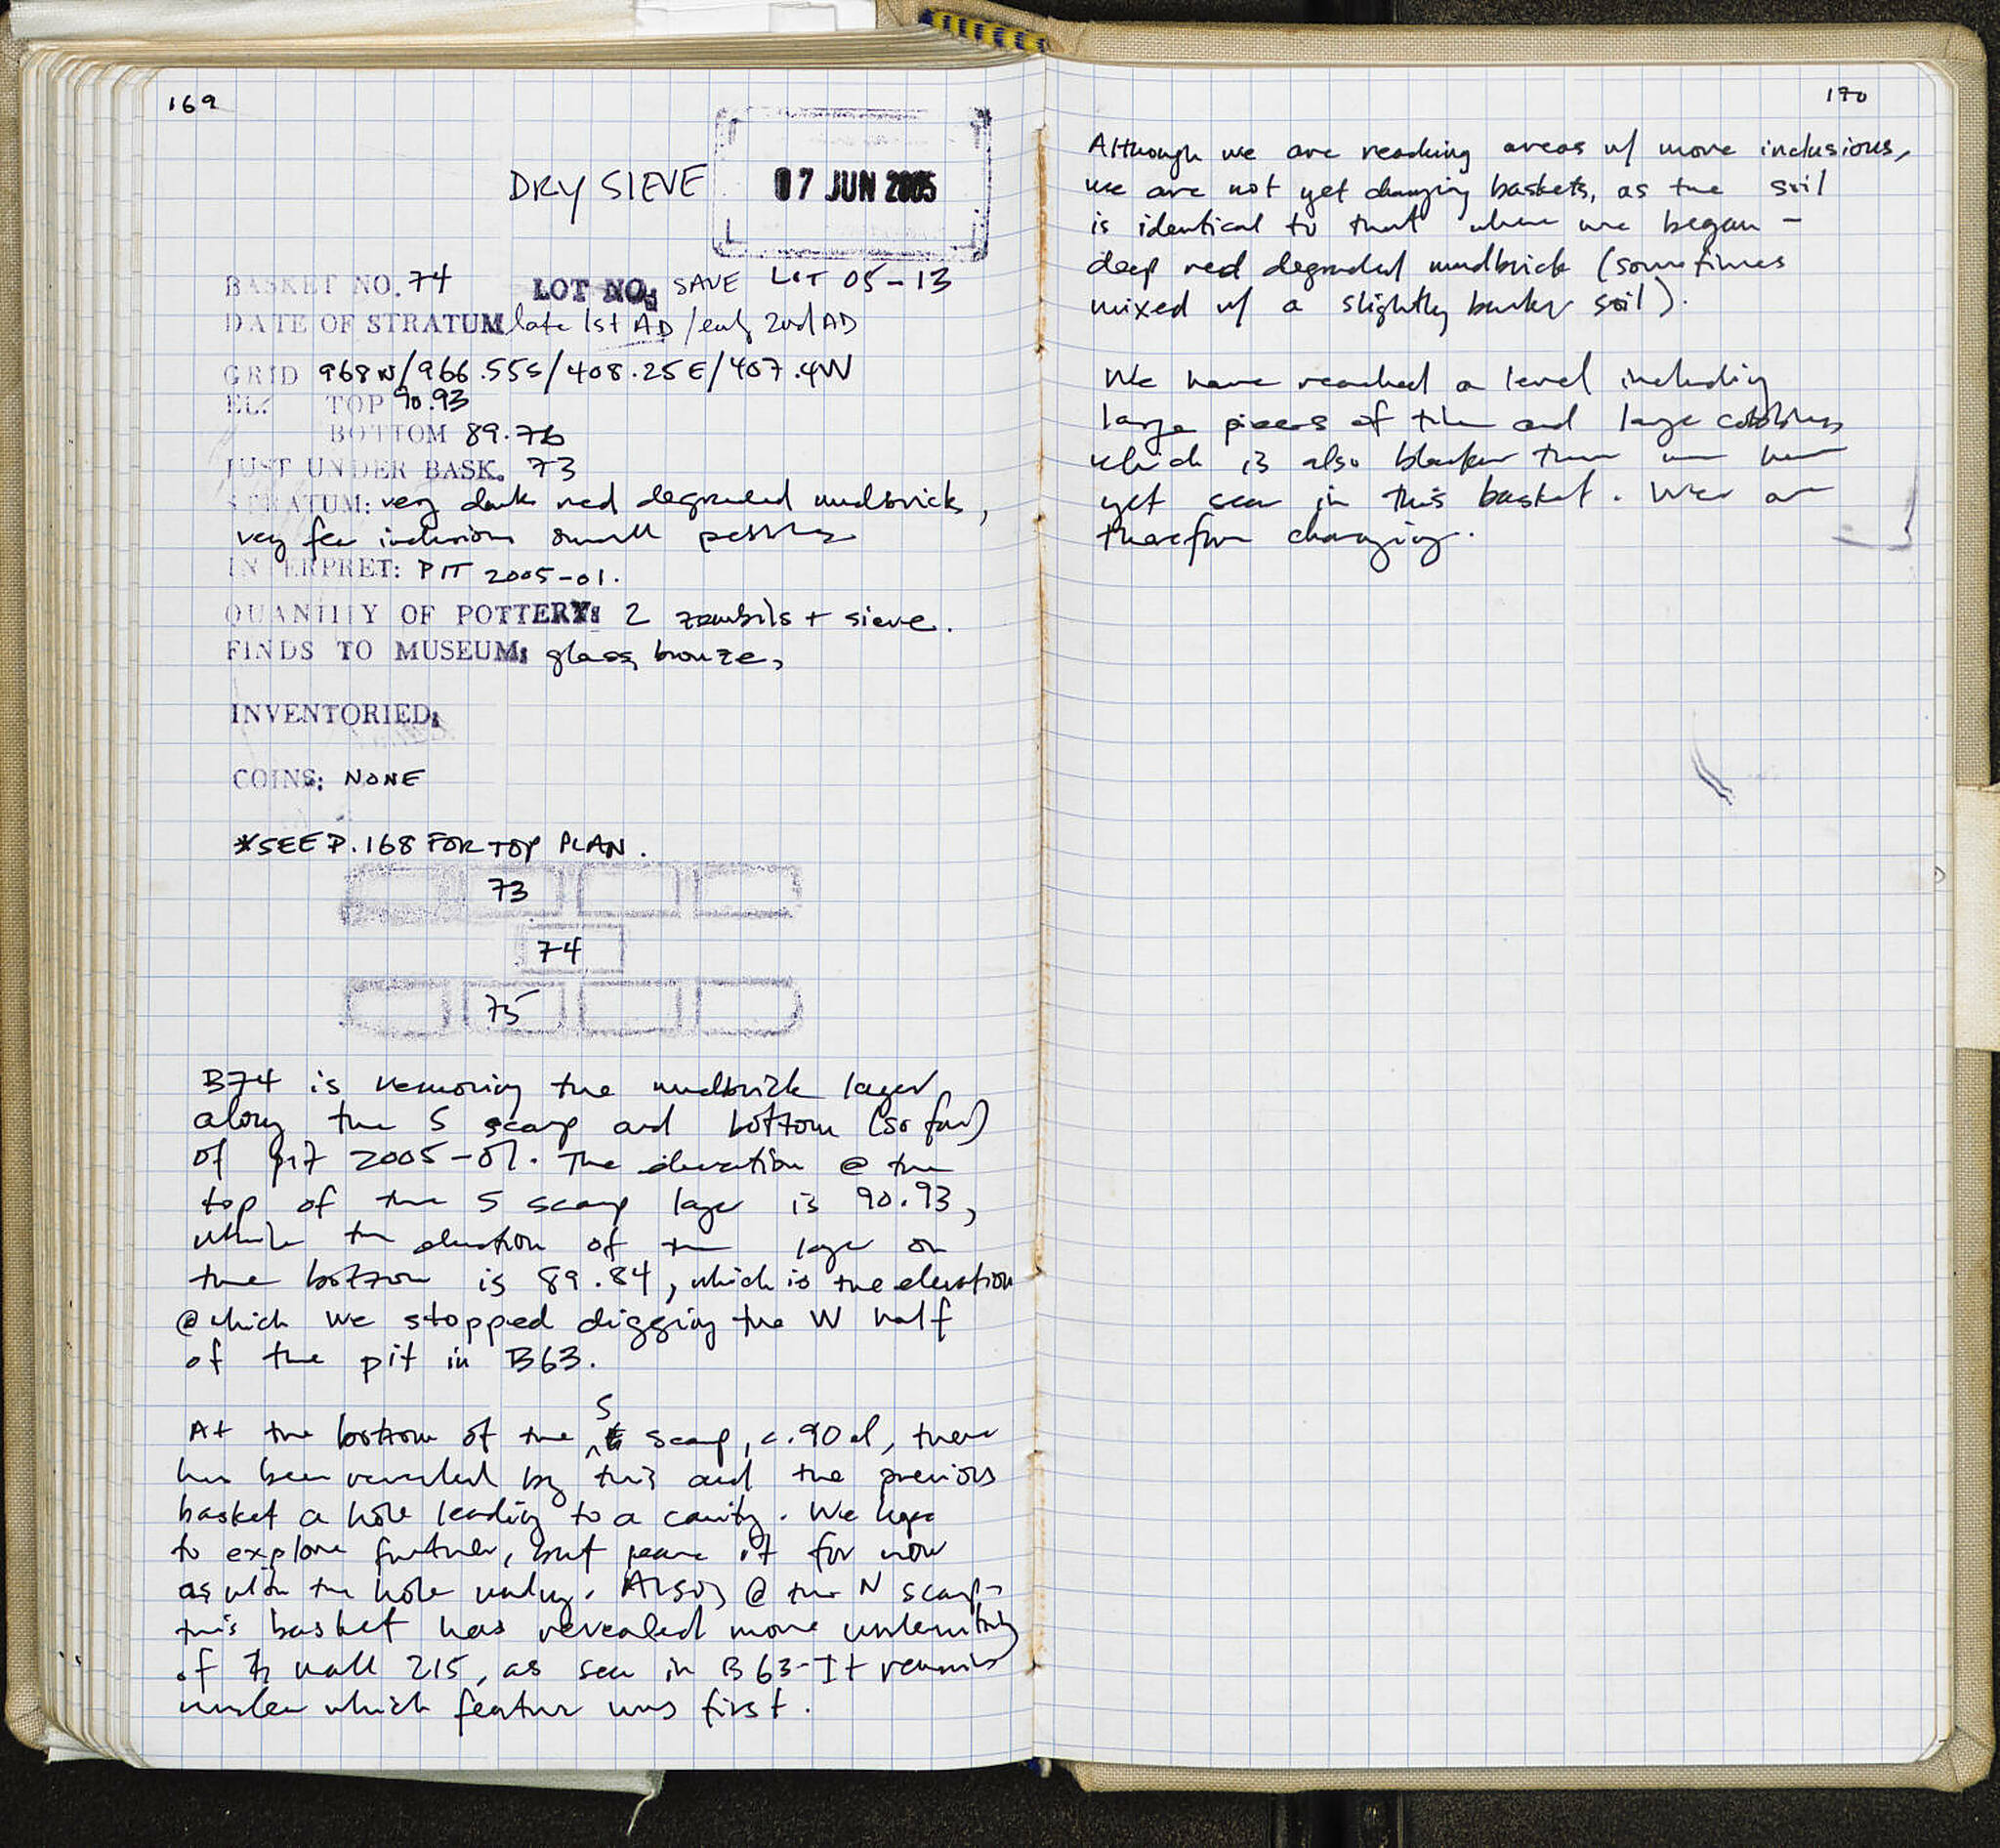 169
DRY SIEVE
07 JUN 2005
BASKET NO. 74 LOT NO: SAVE LOT 05-13
DATE OF STRATUM late 1st AD/early 2nd AD
GRID 968N/966.55S/408.25E/407.4W
EL: TOP 90.93
BOTTOM 89.76
JUST UNDER BASK. 73
STRATUM: very dark red degraded mudbrick,
very few inclusions small pebbles
INTERPRET: PIT 2005-01.
QUANTITY OF POTTERY: 2 zembils + sieve.
FINDS TO MUSEUM: glass, bronze,
INVENTORIED:
COINS: NONE
*SEE P. 168 FOR TOP PLAN.
73
74
75
B74 is removing the mudbrick layer
along the S scarp and bottom (so far)
of pit 2005-01. The elevation @ the
top of the S scarp layer is 90.93,
while the elevation of the layer on
the bottom is 89.84, which is the elevation
@ which we stopped digging the W half
of the pit in B63.
At the bottom of the S scarp, c. 90 el, there
has been revealed by this and the previous
basket a hole leading to a cavity. We hope
to explore further, but leave it for now
as the hole. Also, @ the N scarp-
this basket has revealed more
of wall 215, as seen in B63-It remains
unclear which feature was first.
170
Although we are reaching areas w/ more inclusions,
we are not yet changing baskets, as the soil
is identical to that where we began -
deep red degraded mudbrick (sometimes
mixed w/ a slightly soil).
We have reached a level including
large pieces of tile and large cobbles
which is also blacker than we have
yet seen in this basket. We are
therefore changing.